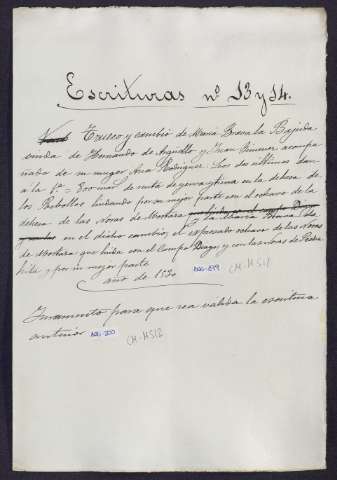 Escrituras nº 13 y 14.
Trueco y cambio de María Brava la Bajida
viuda de Hernando de Arguello y Juan Ximenez acompa
ñado de su muger Ana Rodriguez. Los dos ultimos dan
a la 1ª = 500 mrs de renta de yerva y bellota en la dehesa de
los Rebollos lindando por su mejor parte con el ochavo de la
dehesa de las Novas de Mochara y la María Brava, da
en el dicho cambio, el espresado ochavo de las Novas
de Mochara que linda con el Campo Diago, y con las Novas de Piedra
hita y por su mejor parte
año de 1530
Juramento para que sea valida la escritura
anterior
CM-H512